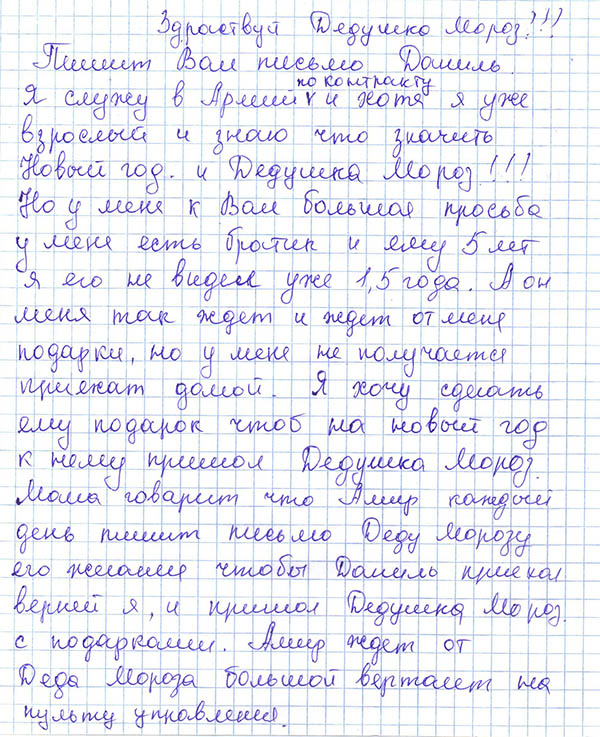 Здраствуй Дедушко Мороз!!!
Пишит Вам письмо Даниль.
по контракту
Я служу в Армий v и хотя я уже
взрослый и знаю что значить
Новый год. и Дедушка Мороз!!!
Но у меня к Вам большая просьба
у меня есть братик и ему 5 лет
я его не видел уже 1,5 года. А он
меня так ждет и ждет от меня
подарки, но у меня не получается
приехат домой. Я хочу сделать
ему подарок чтоб на новый год
к нему пришол Дедушка Мороз.
Мама говарит что Амир каждый
день пишит письмо Деду Морозу
его желания чтобы Даниль приехал
верней я, и пришол Дедушка Мороз.
с подарками. Амир ждет от
Деда Мороза большой верталет на
пульту управления.